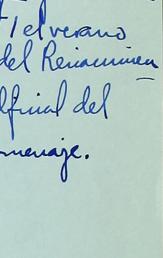 el verano
del Renacimien
al final del
menaje.